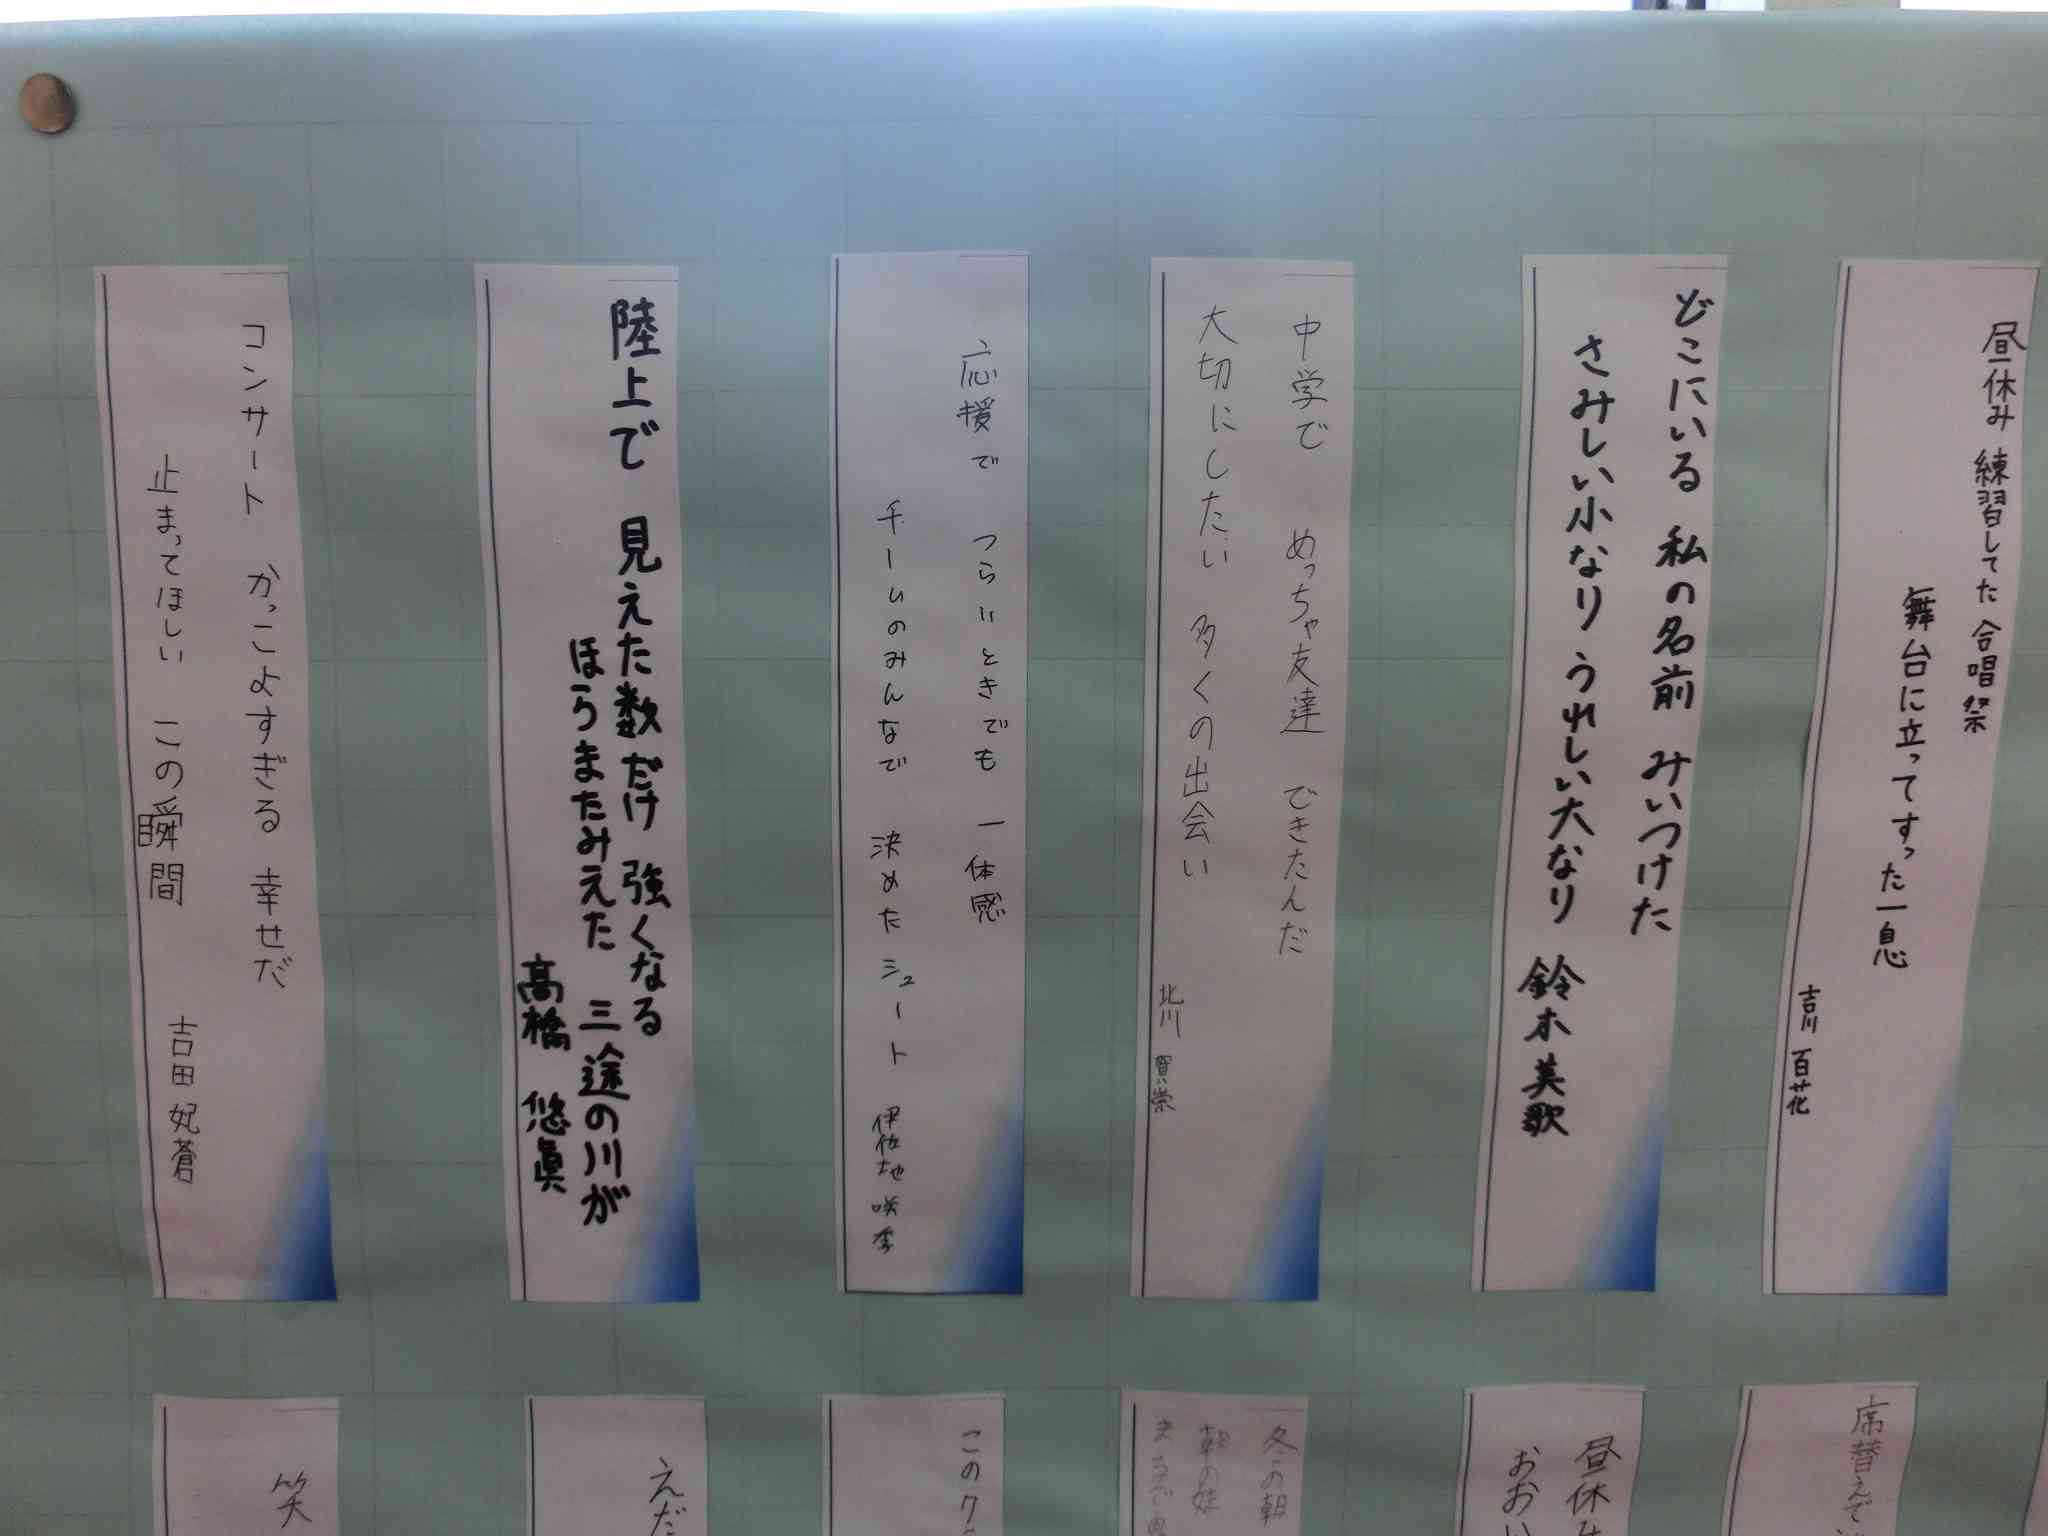 昼休み 練習してた 合唱祭
舞台に立ってすった一息
吉川 百花
どこにいる 私の名前 みいつけた
さみしい小なり うれしい大なり
鈴木美歌
中学で めっちゃ友達 できたんだ
大切にしたい 多くの出会い
北川 賢崇
応援で つらいときでも 一体感
チームのみんなで 決めたシュート
伊佐地 咲季
陸上で 見えた数だけ 強くなる
ほらまたみえた 三途の川が
高橋 悠眞
コンサート かっこよすぎる 幸せだ
止まってほしい この瞬間
吉田 妃蒼
席替えで
昼休み
おおい
冬の朝
朝の妹
まるで
このク
えだ
笑